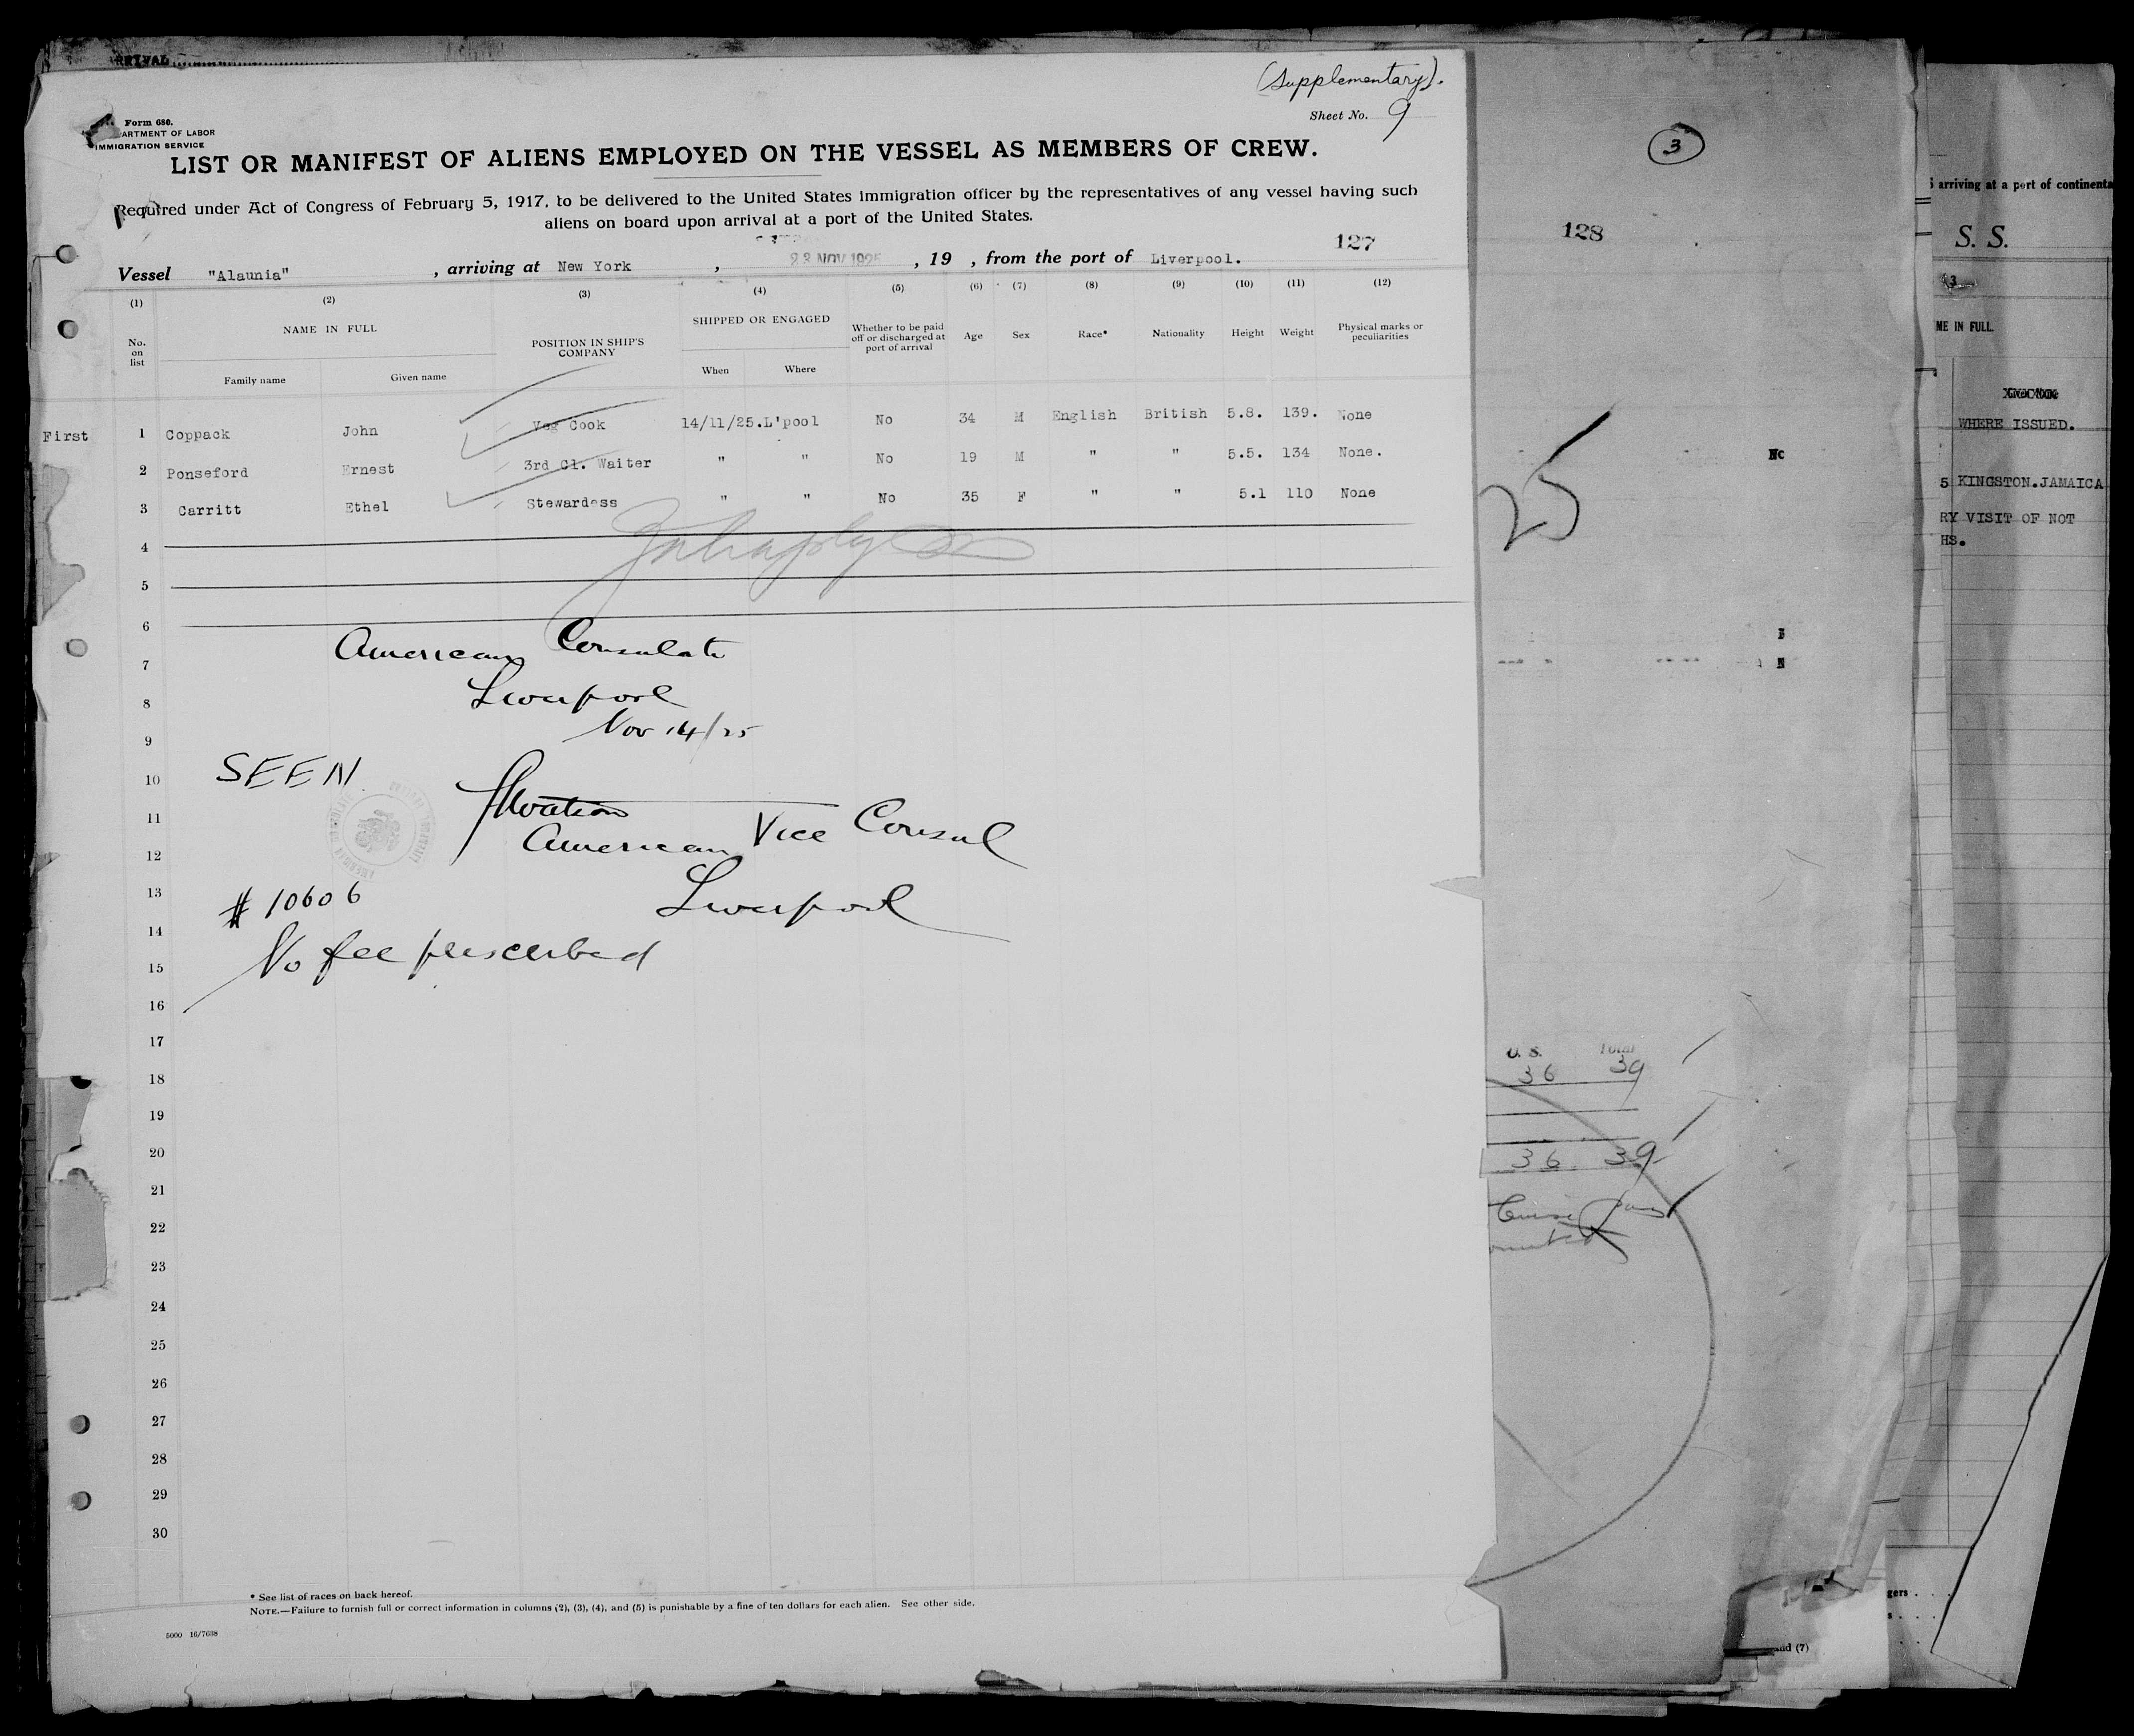 RRIVAL
(Supplementary).
Sheet No. 9
Form 680.
ARTMENT OF LABOR
IMMIGRATION SERVICE
LIST OR MANIFEST OF ALIENS EMPLOYED ON THE VESSEL AS MEMBERS OF CREW.
Required under Act of Congress of February 5, 1917, to be delivered to the United States immigration officer by the representatives of any vessel having such
aliens on board upon arrival at a port of the United States.
127
Vessel "Alaunia", arriving at New York, 23 NOV 1925, 19 , from the port of Liverpool.
(1) (2) (3) (4) (5) (6) (7) (8) (9) (10) (11) (12)
No. on list NAME IN FULL POSITION IN SHIP'S COMPANY SHIPPED OR ENGAGED Whether to be paid off or discharged at port of arrival Age Sex Race* Nationality Height Weight Physical marks or peculiarities
Family name Given name When Where
First 1 Coppack John Veg Cook 14/11/25. L'pool No 34 M English British 5.8. 139. None
2 Ponseford Ernest 3rd Cl. Waiter " " No 19 M " " 5.5. 134 None.
3 Carritt Ethel Stewardess " " No 35 F " " 5.1 110 None
4
5
6
American Consulate
7
Liverpool
8
Nov 14/25
9
SEEN
10
11
American Vice Consul
12
Liverpool
13
# 10606
14
No fee prescribed
15
16
17
18
19
20
21
22
23
24
25
26
27
28
29
30
* See list of races on back hereof.
NOTE.—Failure to furnish full or correct information in columns (2), (3), (4), and (5) is punishable by a fine of ten dollars for each alien. See other side.
5000 16/7638
3
128
25
Nc
U. S. Total
36 39
36 39
arriving at a port of continenta
S. S.
43
ME IN FULL.
WHERE ISSUED.
5 KINGSTON.JAMAICA
RY VISIT OF NOT
HS.
gers . .
s . . . .
and (7)